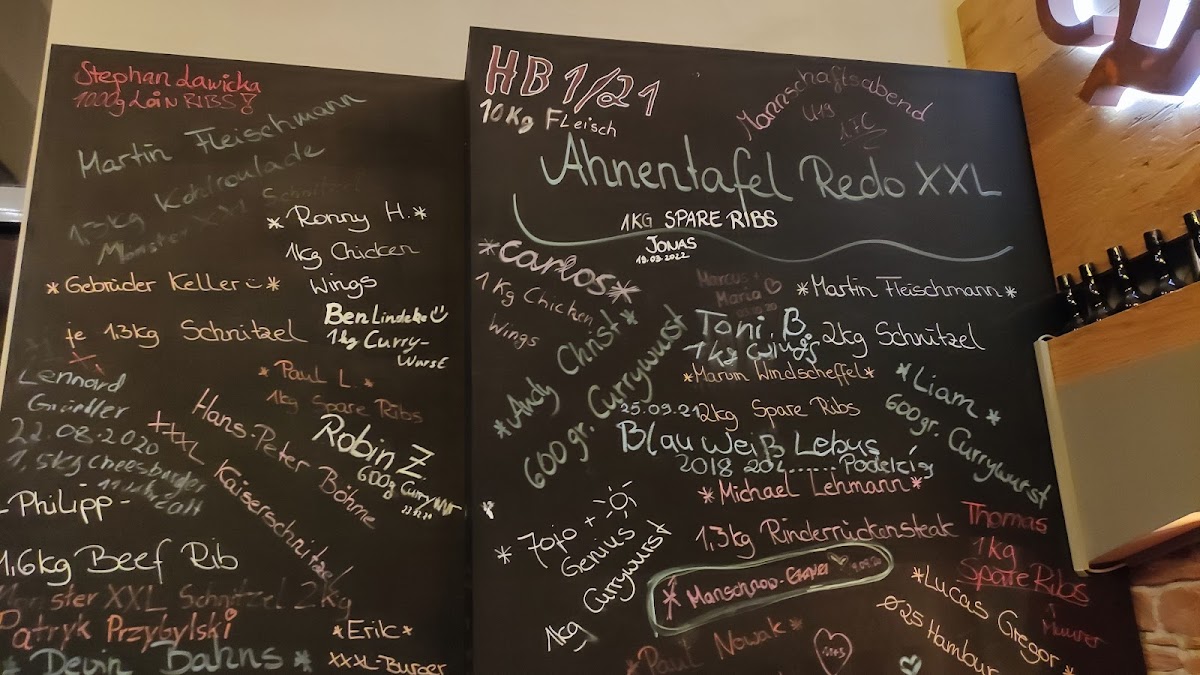 Stephan Lawicka
1000g Loin RIBS
Martin Fleischmann
1,3kg Kohlroulade
Monster XXL Schnitzel
*Ronny H.*
1kg Chicken
Wings
*Gebrüder Keller*
je 1,3kg Schnitzel
Ben Lindeke
1kg Curry-
Wurst
*Paul L.*
1kg Spare Ribs
Lennard
22.08.2020
1,5kg Cheesburger
Hans-Peter Böhme
XXXL Kaiserschnitzel
Robin Z.
600g Currywurst
-Philipp-
1,6kg Beef Rib
Monster XXL Schnitzel 2kg
Patryk Przybylski
Devin Bahns *
*Erik*
XXXL-Burger
HB 1/21
10Kg Fleisch
Mannschaftsabend
U19
1.FC
Ahnentafel Redo XXL
1KG SPARE RIBS
JONAS
19.03.2022
*Carlos*
1Kg Chicken
Wings
Marcus +
Maria
*Martin Fleischmann*
2kg Schnitzel
Toni B.
1kg Wings
*Andy Christ*
600gr. Currywurst
*Marvin Windscheffel*
25.09.21 2kg Spare Ribs
*Liam*
600gr. Currywurst
Blau Weiß Lebus
2018
*Michael Lehmann*
1,3kg Rinderrückensteak
* Jojo +
Genius
1kg Currywurst
Thomas
1kg
Spare Ribs
*Lucas Gregor*
Ø25 Hambur
*Paul Nowak*